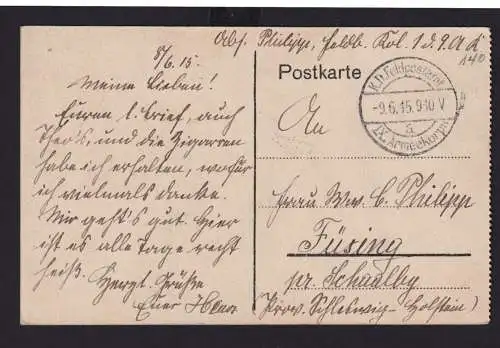 Abs. Philipp, Feldb. Kol. 1 d. 9. A K
8/6. 15.
Meine Lieben!
Euren l. Brief, auch
Theo's, und die Zigarren
habe ich erhalten, wofür
ich vielmals danke.
Mir geht's gut. Hier
ist es alle Tage recht
heiß. Herzl. Grüße
Euer
Postkarte
K.D. Feldpostamt
-9.6.15. 9-10 V
a
IX. Armeekorps
An
Frau Ww. C. Philipp
Füsing
pr. Schaalby
(Prov. Schleswig-Holstein)